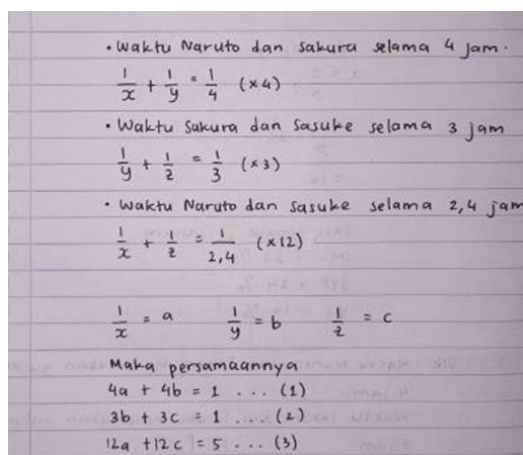 • Waktu Naruto dan Sakura selama 4 jam.
1/x + 1/y = 1/4 (×4)
• Waktu Sakura dan Sasuke selama 3 jam
1/y + 1/z = 1/3 (×3)
• Waktu Naruto dan Sasuke selama 2,4 jam
1/x + 1/z = 1/2,4 (×12)
1/x = a 1/y = b 1/z = c
Maka persamaannya
4a + 4b = 1 ... (1)
3b + 3c = 1 ... (2)
12a + 12c = 5 ... (3)